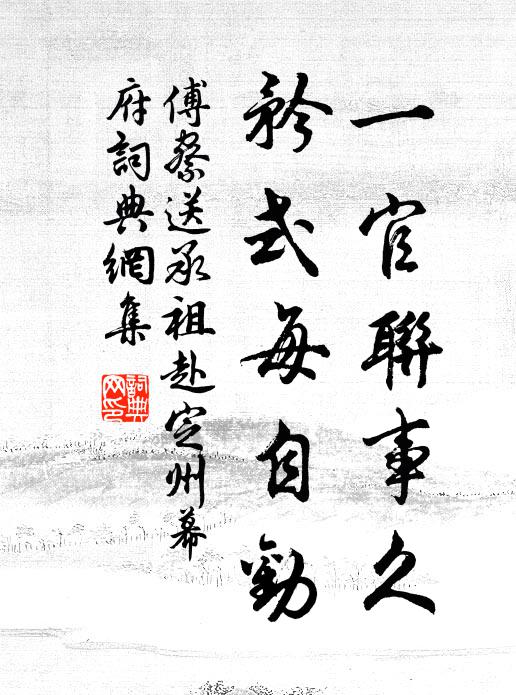 一官聯事久
矜式每自勤
傅察送承祖赴定州幕
府詞典網集
詞典
网印